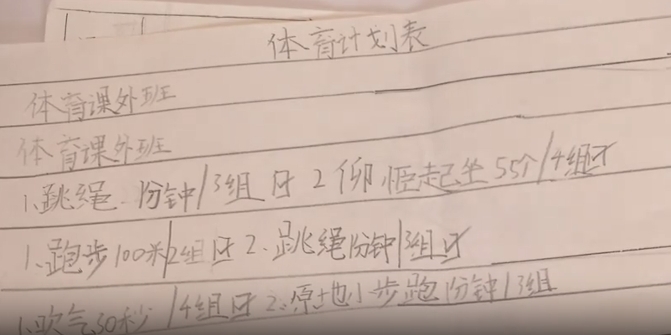 体育计划表
体育课外班
体育课外班
1.跳绳 1分钟/3组 2 仰卧起坐55个/4组
1.跑步100米/2组 2.跳绳1分钟/3组
1.吹气30秒/4组 2.原地小步跑1分钟/3组